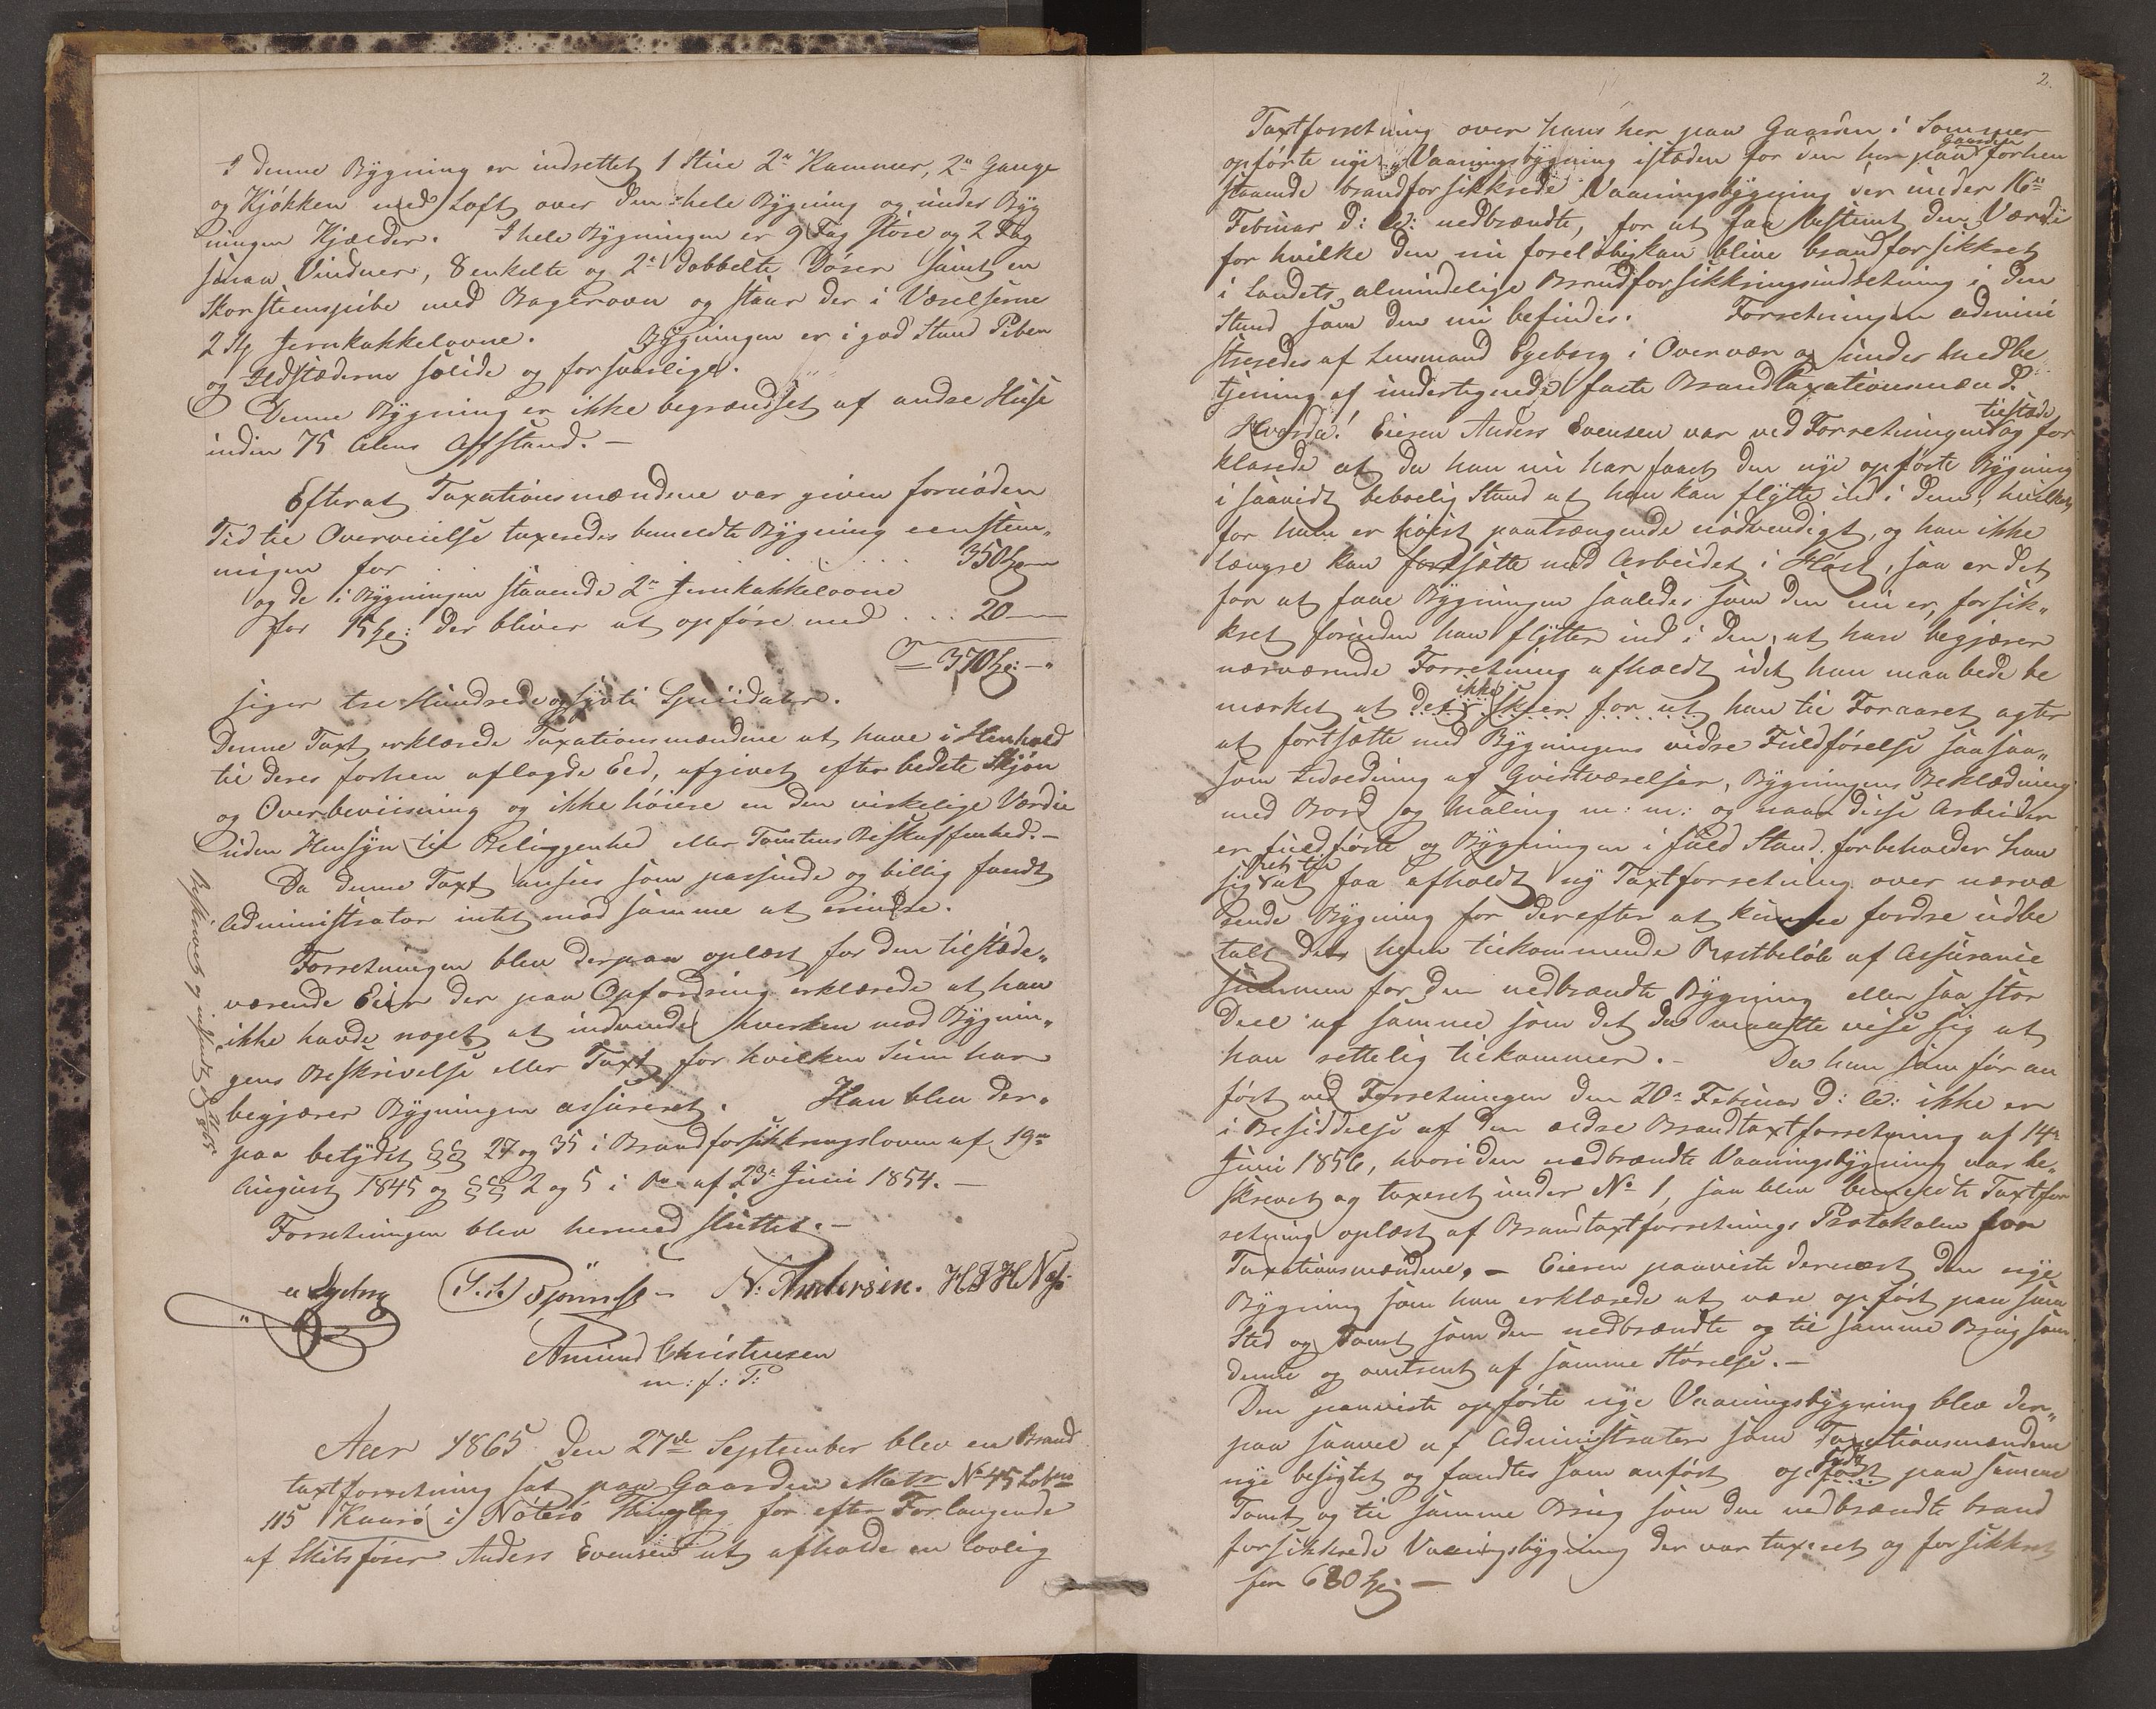 I denne Bygning er indrettet 1 Stue 2de Kammer, 2de Gange
og Kjøkken med Loft over den hele Bygning og under Byg
ningen Kjælder. I hele Bygningen er 9 Fag store og 2 Fag
smaa Vinduer, 8 enkelte og 2de dobbelte Døre samt en
Skorsteenspibe med Bagerovn og staar der i Værelserne
2 St Jernkakkelovne. Bygningen er i god Stand Piben
og Ildstæderne solide og forsvarlige.
Denne Bygning er ikke begrændset af andre Huse
inden 75 Alens Afstand. —
Efterat Taxationsmændene var given fornøden
Tid til Overveielse taxeredes bemeldte Bygning eenstem„
migen for . . . . . . 350 Spd —
og de i Bygningen staaende 2de Jernkakkelovne
for 15 Spd: der bliver at opføre med . . . 20 —
= 370 Spd: — „
siger tre Hundrede og sytti Speciedaler.
Denne Taxt erklærede Taxationsmændene at have i Henhold
til deres forhen aflagde Eed, afgivet efter bedste Skjøn
og Overbeviisning og ikke høiere en den virkelige Værdie
uden Hensyn til Beliggenhed eller Tomtens Beskaffenhed. —
Da denne Taxt ansees som passende og billig fandt
Administrator intet mod samme at erindre.
Forretningen blev derpaa oplæst for den tilstæde„
værende Eier der paa Opfordring erklærede at han
ikke havde noget at indvende hverken mod Bygnin„
gens Beskrivelse eller Taxt for hvilken Sum han
begjærer Bygningen assureret. Han blev der„
paa betydet §§ 27 og 35 i Brandforsikkringsloven af 19de
August 1845 og §§ 2 og 5 i Do af 23de Juni 1854. —
Forretningen blev hermed sluttet. —
Beskrevet og indsendt 1865
N: Andersen. H H Næs
Amund Christensen
m: f: P:
Aar 1865 den 27de September blev en Brand
taxtforretning sat paa Gaarden Matr No 45 Løbno
115 Kaarø i Nøterø Thinglag for efter Forlangende
af Skibsfører Anders Evensen at afholde en lovlig
2.
Taxtforretning over hans her paa Gaarden i Sommer
opførte nye Vaaningsbygning istæden for den her paa Gaarden forhen
staaende brandforsikkrede Vaaningsbygning der under 16de
Februar d: A: nedbrændte, for at faa bestemt den Værdi
for hvilke den nu foreløbig kan blive brandforsikkret
i Landets almindelige Brandforsikkringsindretning i den
Stand som den nu befindes. Forretningen admini
streredes af Lensmand Syeberg i Overvær og under Medbe
tjening af undertegnede faste Brandtaxationsmænd.
Hvorda! Eieren Anders Evensen var ved Forretningen tilstæde og for
klarede at da han nu har faaet den nye opførte Bygning
i saavidt beboelig Stand at han kan flytte ind i den, hvilket
for ham er høist paatrængende nødvendigt, og han ikke
længre kan fortsætte med Arbeidet i Høst, saa er det
for at faae Bygningen saaledes som den nu er, forsik„
kret forinden han flytter ind i den, at han begjærer
nærværende Forretning afholdt idet han maa bede be
mærket at det ikke skeer for ut han til Foraaret agter
at fortsætte med Bygningens vidre Fuldførelse saasaa„
som Indredning af Qvistværelser, Bygningens Beklædning
med Bord og Maling m: m: og naar disse Arbeider
er fuldførte og Bygningen i fuld Stand forbeholder han
sig Ret til at faa afholdt ny Taxtforretning over nærvæ
rende Bygning for derefter at kunne fordre udbe
talt det ham tilkommende Restbeløb af Assurance
summen for den nedbrændte Bygning eller saa stor
Deel af samme som det da maatte vise sig at
han rettelig tilkommer. — Da han som før an
ført ved Forretningen den 20de Februar d: A: ikke er
i Besiddelse af den ældre Brandtaxtforretning af 14de
Juni 1856, hvori den nedbrændte Vaaningsbygning var be„
skrevet og taxeret under No 1, saa blev bemeldte Taxtfor
retning oplæst af Brandtaxtforretnings Protokolen for
Taxationsmændene. — Eieren paaviste dernæst den nye
Bygning som han erklærede at være opført paa sam
Sted og Tomt som den nedbrændte og til samme Brug som
denne og omtrent af samme Størelse. —
Den paaviste opførte nye Vaaningsbygning blev der„
paa saavel af Administrator som Taxationsmændene
nye besigtet og fandtes som anført opført paa samme
Tomt og til samme Brug som den nedbrændte brand
forsikkrede Vaaningsbygning der var taxeret og forsikkret
for 680 Spd —